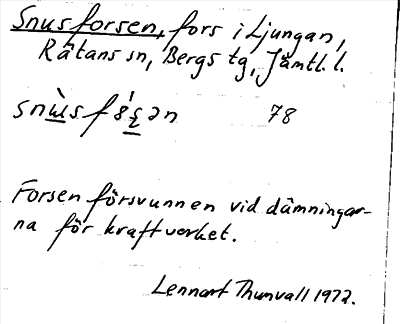 Snusforsen, fors i Ljungan,
Rätans sn, Bergs tg, Jämtl. l.
78
Forsen försvunnen vid dämningar-
na för kraftverket.
Lennart Thunvall 1972.